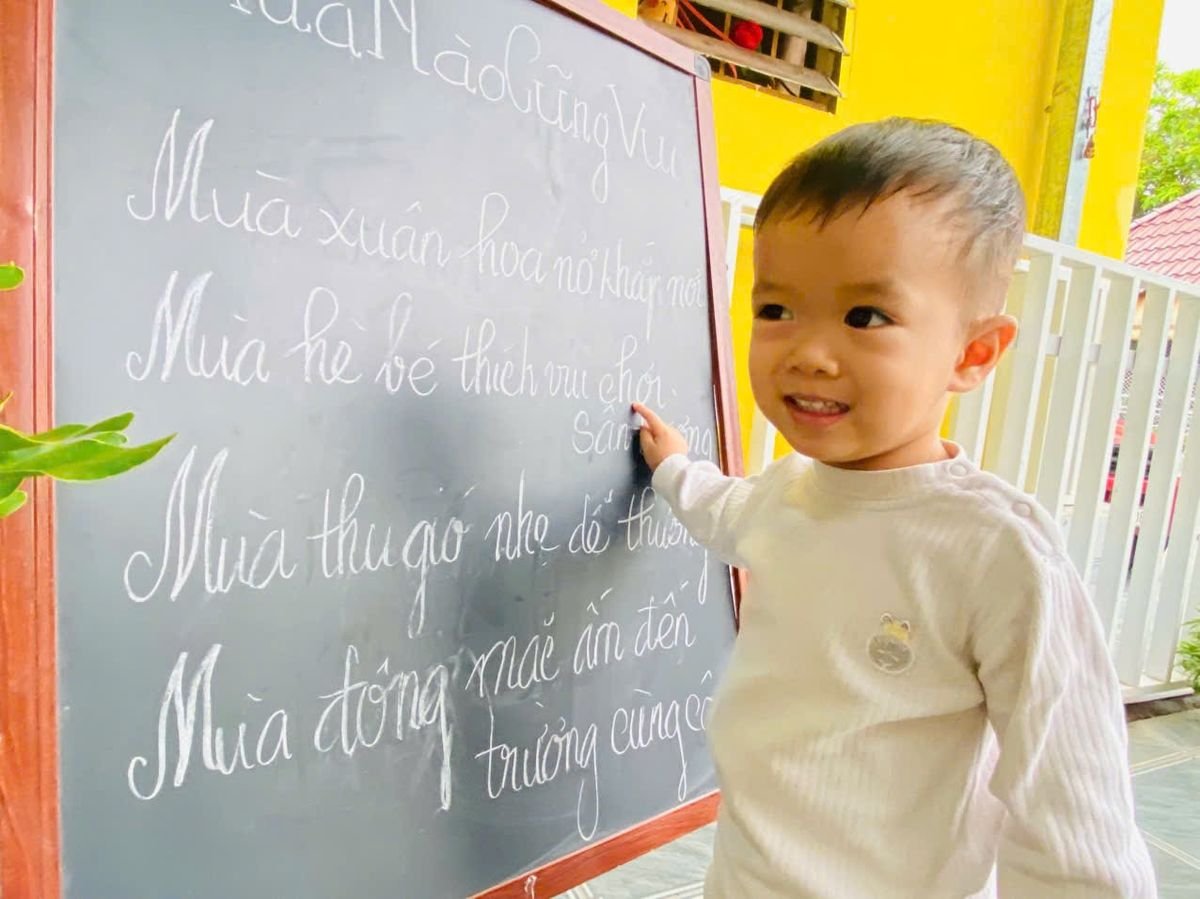 Mùa Nào Cũng Vui
Mùa xuân hoa nở khắp nơi
Mùa hè bé thích vui chơi
Sân
Mùa thu gió nhẹ dễ thương
Mùa đông mặc ấm đến
trường cùng cô